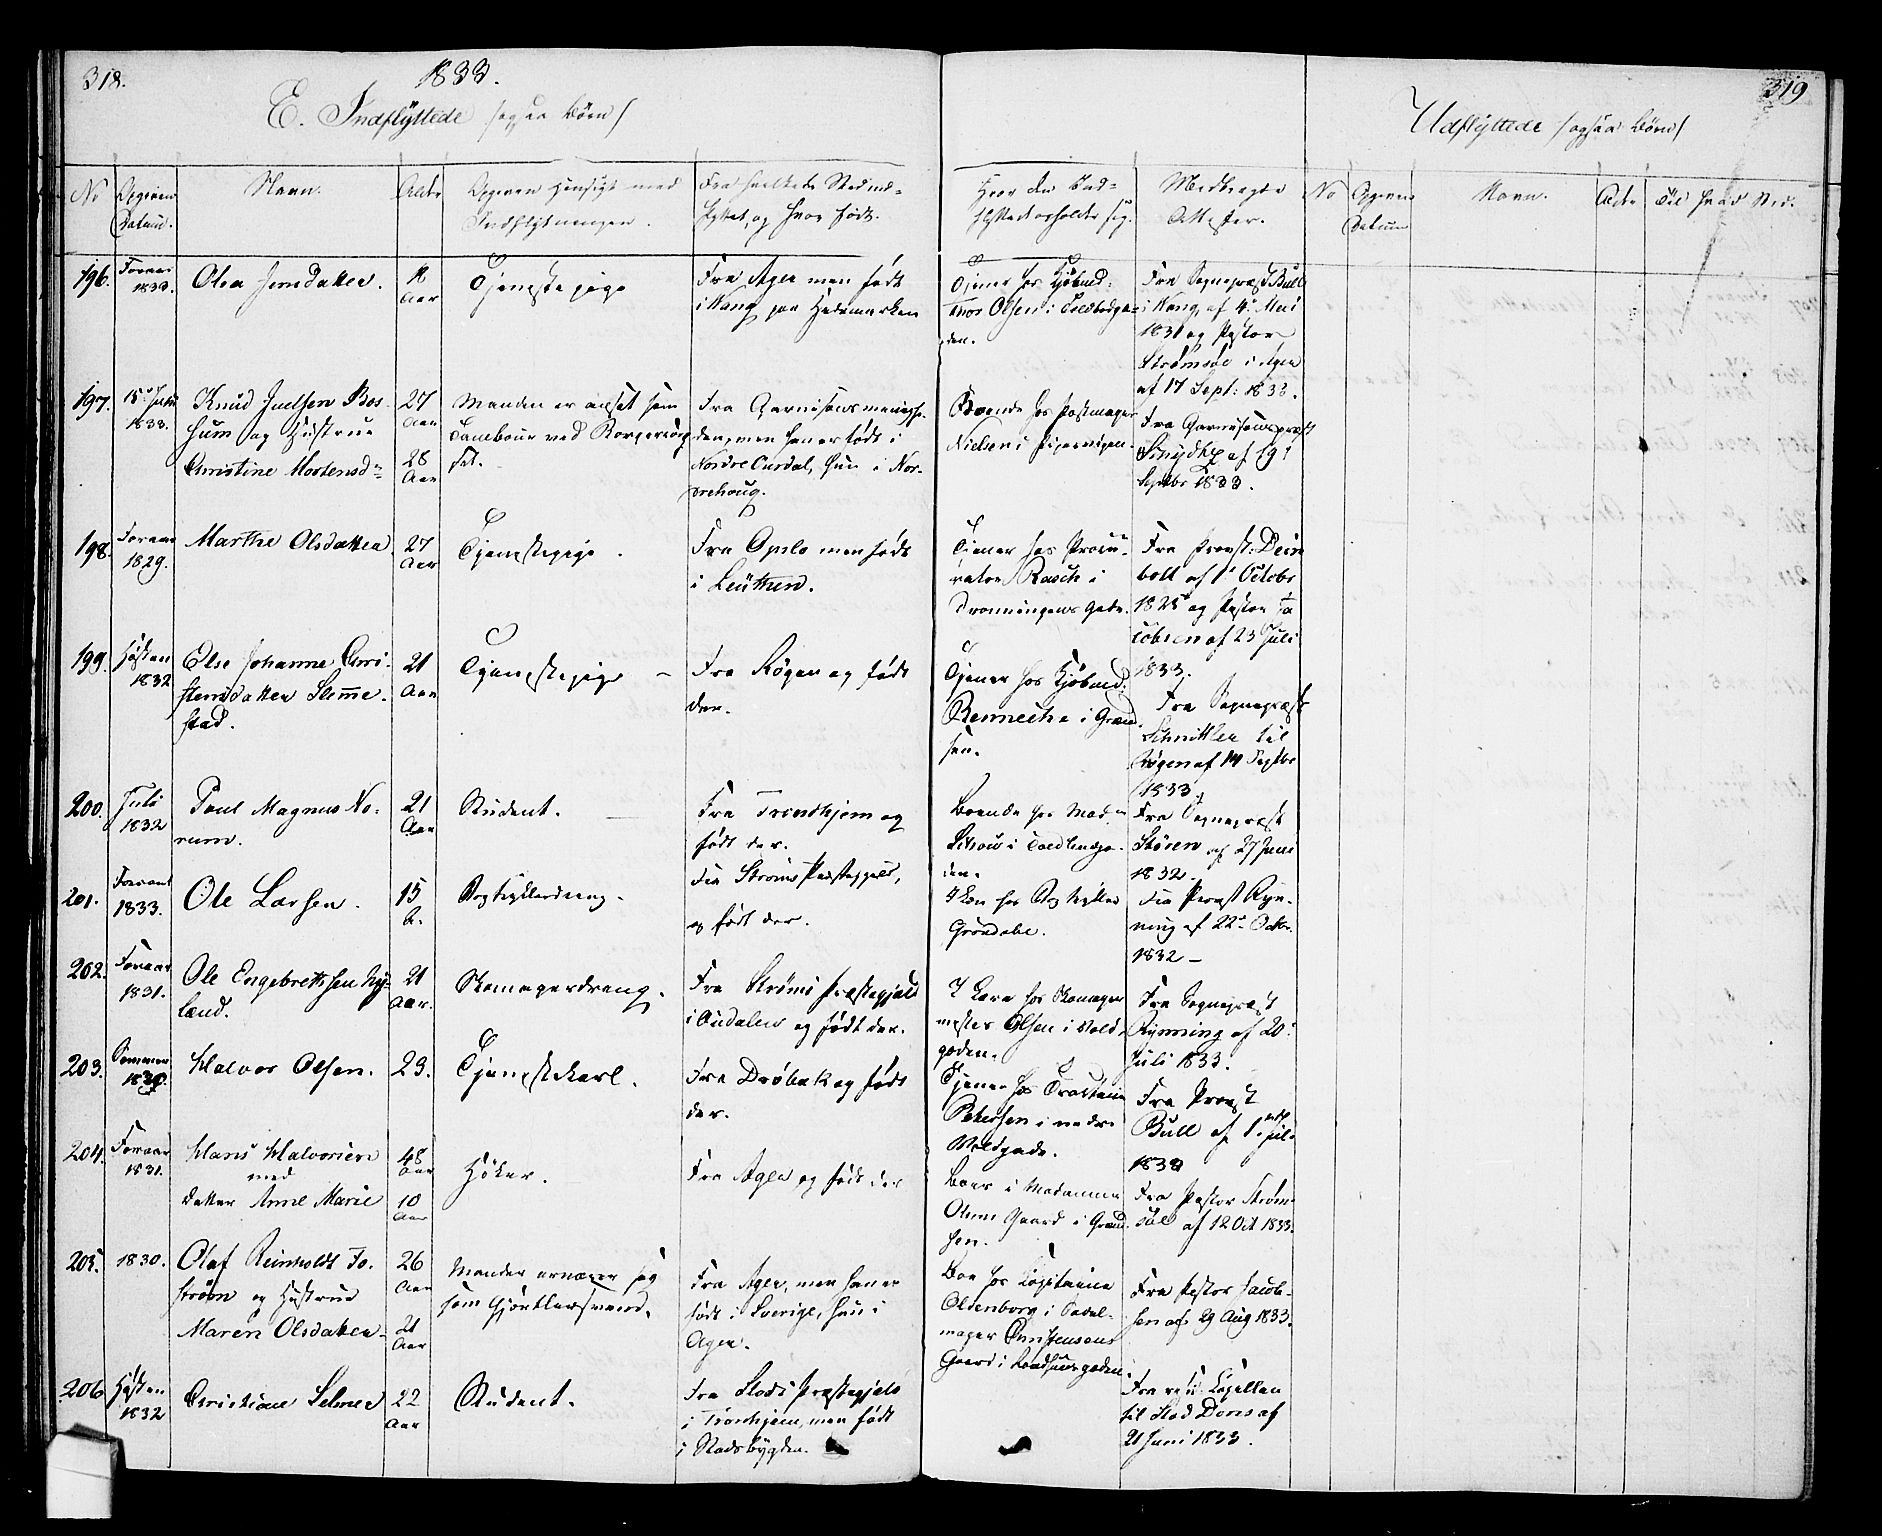 318.
1833.
E. Indflyttede /ogsaa Børn/
No
Opgiven Datum.
Navn.
Alder
Opgiven Hensigt med Indflytningen.
Fra hvilket Sted indflyttet, og hvor født.
Hvor den Indflyttede opholder sig.
Medbragte Attester.
196.
Foraar 1833.
Olea Jensdatter.
Aar
Tjenestepige
Fra Ager men født
i Vang paa Hedemarken
Tjener hos Kjøbmd:
Thor Olsen i Toldbodga-
den.
Fra Sognepræst Bull
i Vang, af 4de Mai
1831 og Pastor
Strømsøe i Ager
af 17 Sept: 1833.
197.
15 1833.
Knud Juelsen Bos-
hum og Hustrue
Christine Mortensd:
27 Aar
28 Aar
Manden er ansat som
Tambour ved Borgervæb-
Fra Garnisonsmenighe-
den, men han er født i
Nordre Ourdal, hun i Nor-
drehoug.
Boende hos Postmager
Nielsen i Pipervigen.
Fra Garnisonspræst
af 19
Septbr 1833.
198.
Foraar 1829.
Marthe Olsdatter
27 Aar
Tjenestepige.
Fra Opslo men født
i Leuthen.
Tjener hos Procu-
rator Rasch i
Dronningens Gade.
Fra Provst: Dein
boll af 1 Octobr
1825 og Pastor Ja
cobsen af 23 Juli
1833.
199.
Høsten 1832
Else Johanne Chri-
stensdatter Slemme-
stad.
21 Aar
Tjenestepige
Fra Røgen og født
der.
Tjener hos Kjøbmd:
Benneche i Græn
sen.
Fra Sognepræst
Schnitler til
Røgen af 14 Septbr
1833.
200.
Juli 1832
Poul Magnus No-
rum.
21 Aar
Student.
Fra Trondhjem og
født der.
Boende hos Mad:
i Toldbodga-
den.
Fra Sognepræst
Støren af 27 Juni
1832.
201.
Foraar 1833.
Ole Larsen.
15
Fra Strøms Præstegjeld,
og født der.
I Lære hos
Grøndahl.
Fra Provst Ryn-
ning af 22de Octbr.
1832 –
202.
Foraar 1831.
Ole Engebrettsen Ny-
land.
21 Aar.
Skomagerdreng.
Fra Strøms Præstegjeld
i Oudalen og født der.
I Lære hos Skomager
mester Olsen i Vold-
gaden.
Fra Sognepræst
Rynning af 20
Juli 1833.
203.
Sommer
Halvor Olsen.
23.
Tjenestekarl.
Fra Drøbak og født
der.
Tjener hos
Petersen i nedre
Voldgade.
Fra Provst
Bull af
204.
Foraar 1831.
Hans Halvorsen
med
datter Anne Marie
48 Aar
10 Aar
Høker.
Fra Ager og født der
Boer i Madamme
Gaard i Græn
sen.
Fra Pastor Strøm
søe af 12 Oct 1833.
205.
1830.
Olaf Reinholdt Fo-
strøm og Hustrue
Maren Olsdatter
26 Aar
21 Aar
Manden ernærer sig
som Gjørtlersvend.
Fra Ager, men han er
født i Sverige, hun i
Ager.
Boe hos Capitaine
Oldenborg i Sadel-
mager Christensens
Gaard i Raadhuusgaden
Fra Pastor Jacob-
sen af 29 Aug 1833.
206
Høsten 1832
Christian Selmer
22 Aar
Student.
Fra Stods Præstegjeld
i Tronhjem, men født
i Stadsbygden.
Fra Capellan
til Stod Dons af
21 Juni 1833.
319
Udflyttede /ogsaa Børn/
No
Opgiven Datum
Navn.
Alder
Til hvad Sted.